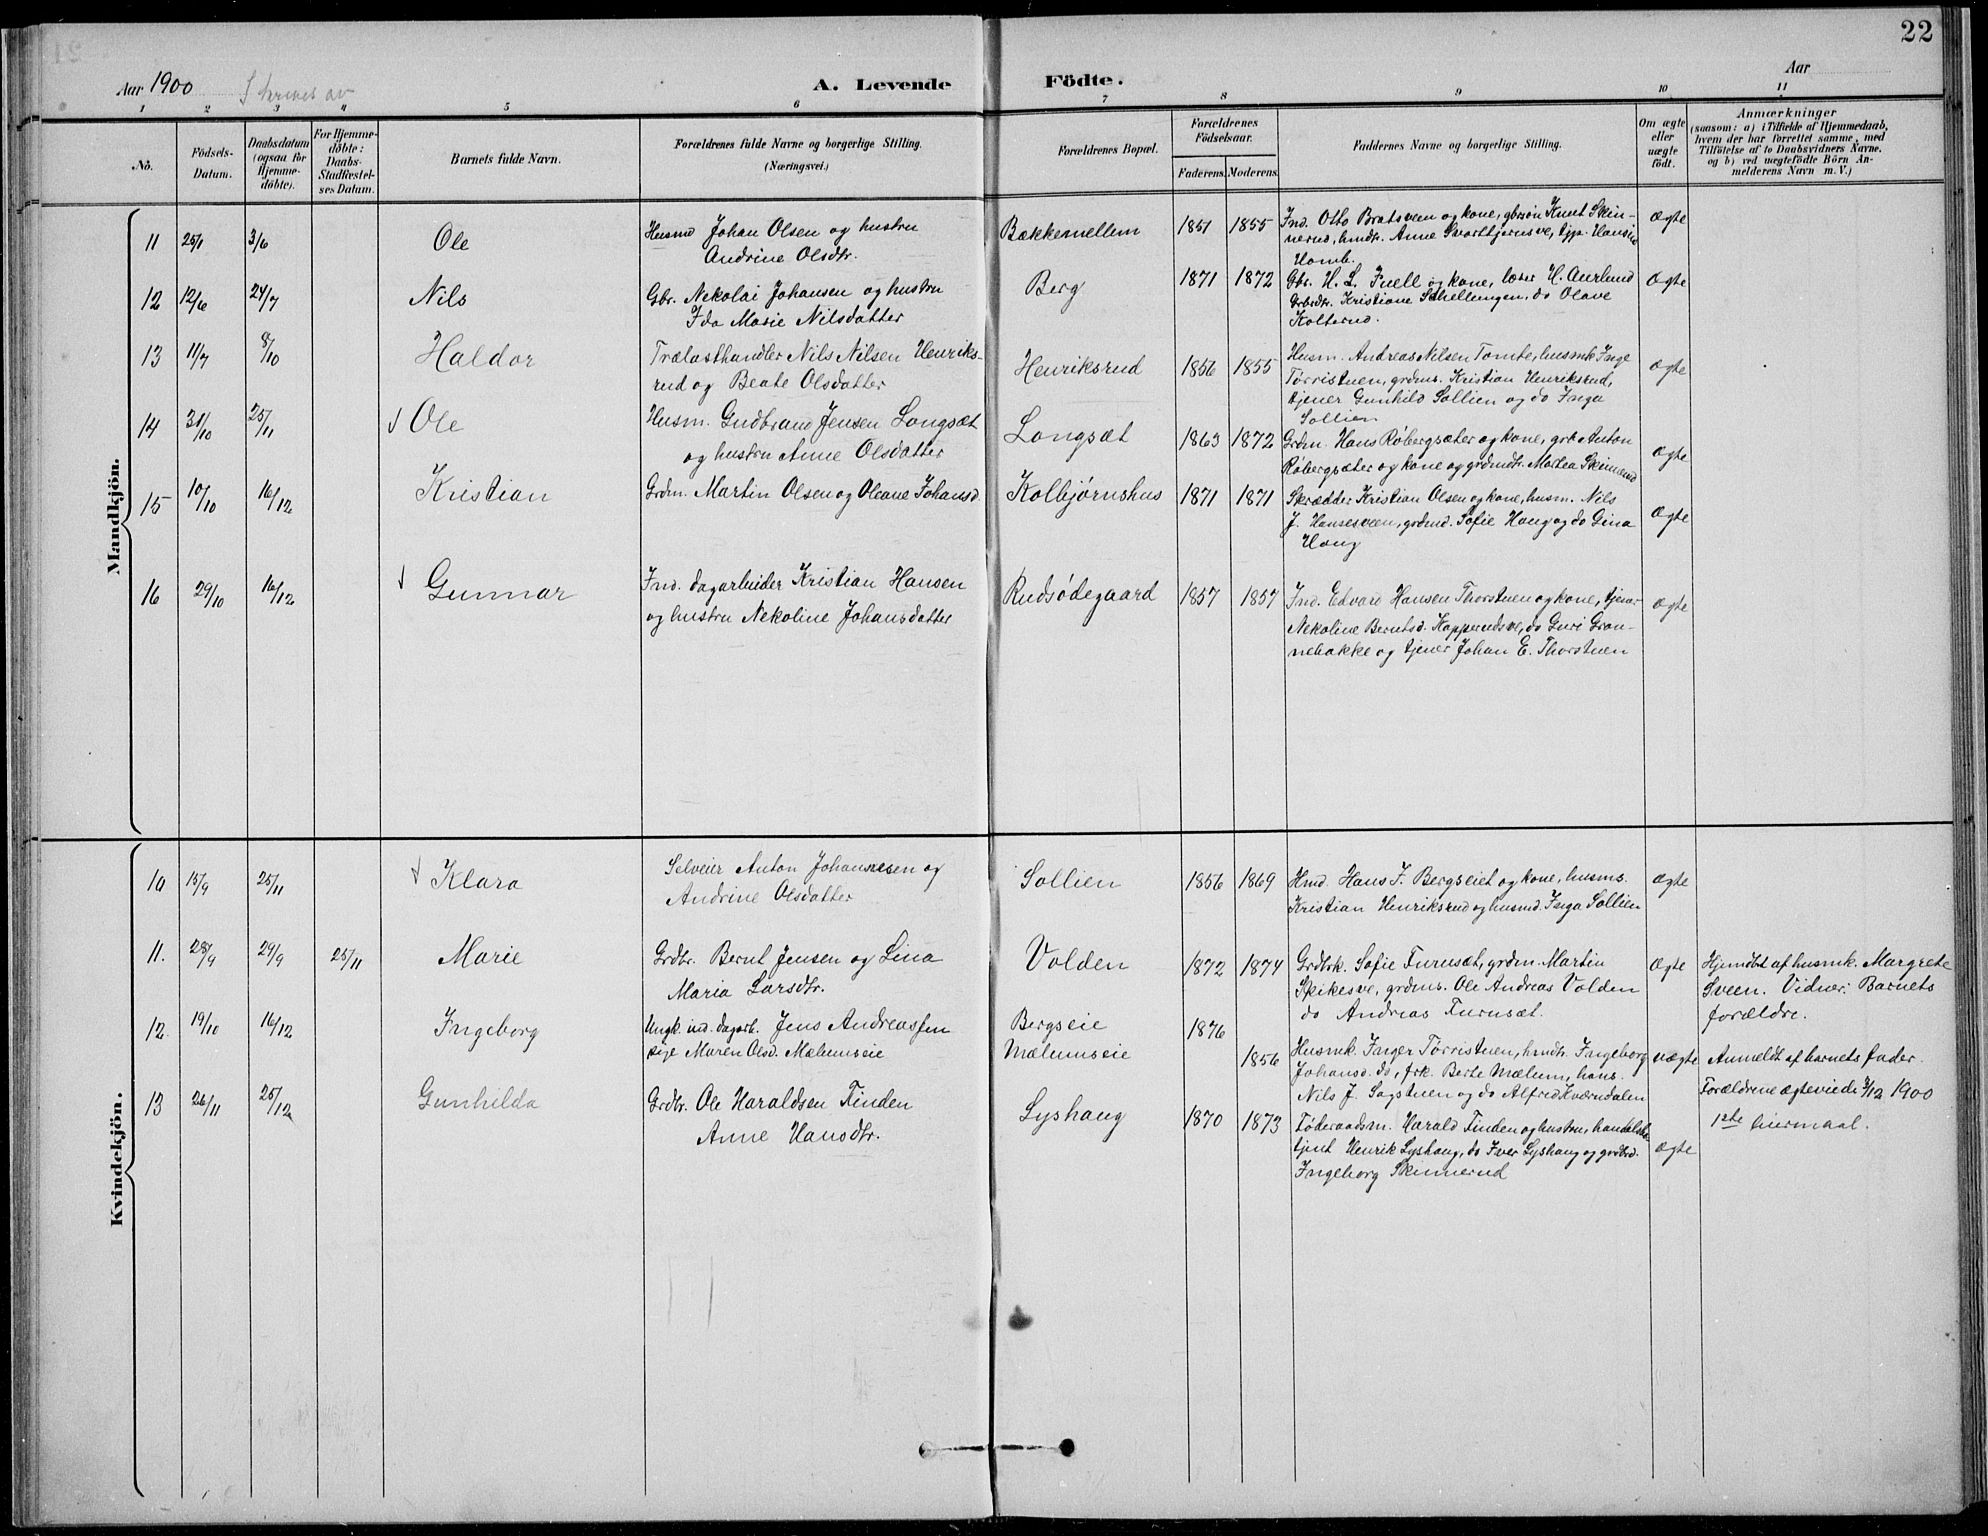 22
Aar 1900 Skrevet av A. Levende Födte. Aar
1 2 3 4 5 6 7 8 9 10 11
No. Födsels-Datum. Daabsdatum (ogsaa for Hjemmedöbte). For Hjemmedöbte: Daabs-Stadfæstelses Datum. Barnets fulde Navn. Forældrenes fulde Navne og borgerlige Stilling. (Næringsvei.) Forældrenes Bopæl. Forældrenes Födselsaar. Faderens. Moderens. Faddernes Navne og borgerlige Stilling. Om ægte eller uægte födt. Anmærkninger (saasom: a) i Tilfælde af Hjemmedaab, hvem der har forrettet samme, med Tilföielse af to Daabsvidners Navne, og b) ved uægtefödte Börn Anmelderens Navn m. V.)
Mandkjön.
11 25/1 3/6 Ole Husmd Johan Olsen og hustru Bækkemellem 1851 1855 Ind. Otto Bratsveen og kone, gbrsön Knut Skin- ægte
Andrine Olsdtr. nerud, hmdt. Anne Svarttjernsve, tjp. Hansine
Homb.
12 12/6 24/7 Nils Gbr. Nekolai Johansen og hustru Berg 1871 1872 Gbr. H. L. Fuell og kone, lærer H. Aurlund ægte
Ida Marie Nilsdatter Grbrdtr. Kristiane Skjellungen, do Olave
Kolterud.
13 11/7 8/10 Haldor Trælasthandler Nils Nilsen Henriks- Henriksrud 1856 1855 Husm. Andreas Nilsen Tomte, husmk Inge ægte
rud og Beate Olsdatter Törristuen, grdms. Kristian Henriksrud,
tjener Gunhild Sollien og do Inga
Sollien
14 31/10 25/11 Ole Husm. Gudbrand Jensen Longsæt Longsæt 1863 1872 Grdm. Hans Röbergsæter og kone, grb. Anton ægte
og hustru Anne Olsdatter Röbergsæter og kone og grdmdtr. Martea Skinnerud
15 10/10 16/12 Kristian Grdm. Martin Olsen og Oleane Johansd. Kolbjørnshus 1871 1871 Skrædder Kristian Olsen og kone, husm. Nils ægte
J. Hansesveen, grdmd. Sofie Haug og do Gina
Haug
16 29/10 16/12 Gunnar Ind. dagarbeider Kristian Hansen Rudsødegaard 1857 1857 Ind. Edvard Hansen Thorstuen og kone, tjener ægte
og hustru Nekoline Johansdatter Nekoline Berntsd. Kopperudsve, do Guri Gron-
nebakke og tjener Johan E. Thorstuen
Kvindekjön.
10 15/9 25/11 Klara Selveier Anton Johannesen og Sollien 1856 1869 Hmd. Hans F. Bergseiet og kone, husms. ægte
Andrine Olsdatter Kristian Henriksrud og husmd. Inga Sollien
11. 28/9 29/9 25/11 Marie Grdbr. Bernt Jensen og Lina Volden 1872 1874 Grdbrk. Sofie Furusæt, grdm. Martin ægte Hjemdøbt af husmk. Margrete
Maria Larsdtr. Skikesve, grdms. Ole Andreas Volden Sveen. Vidner: Barnets
do Andreas Furusæt. forældre.
12. 19/10 16/12 Ingeborg Ungk. ind. dagarb. Jens Andreassen Bergseie 1876
pige Maren Olsd. Mælumseie Mælumseie 1856 Husmk. Inger Törristuen, hmdtr. Ingeborg uægte Anmeldt af barnets fader.
Johansd. do, frk. Berte Mælum, hans. Forældrene ægteviede 3/12 1900
Nils J. Sagstuen og do Alfred Kværndalen 1ste leiermaal.
13 26/11 25/12 Gunhilda Grdbr. Ole Haraldsen Finden Lyshaug 1870 1873 Föderaadsm. Harald Finden og hustru, handelsbe- ægte
Anne Hansdtr. tjent Henrik Lyshaug, do Iver Lyshaug og grdbrd.
Ingeborg Skinnerud